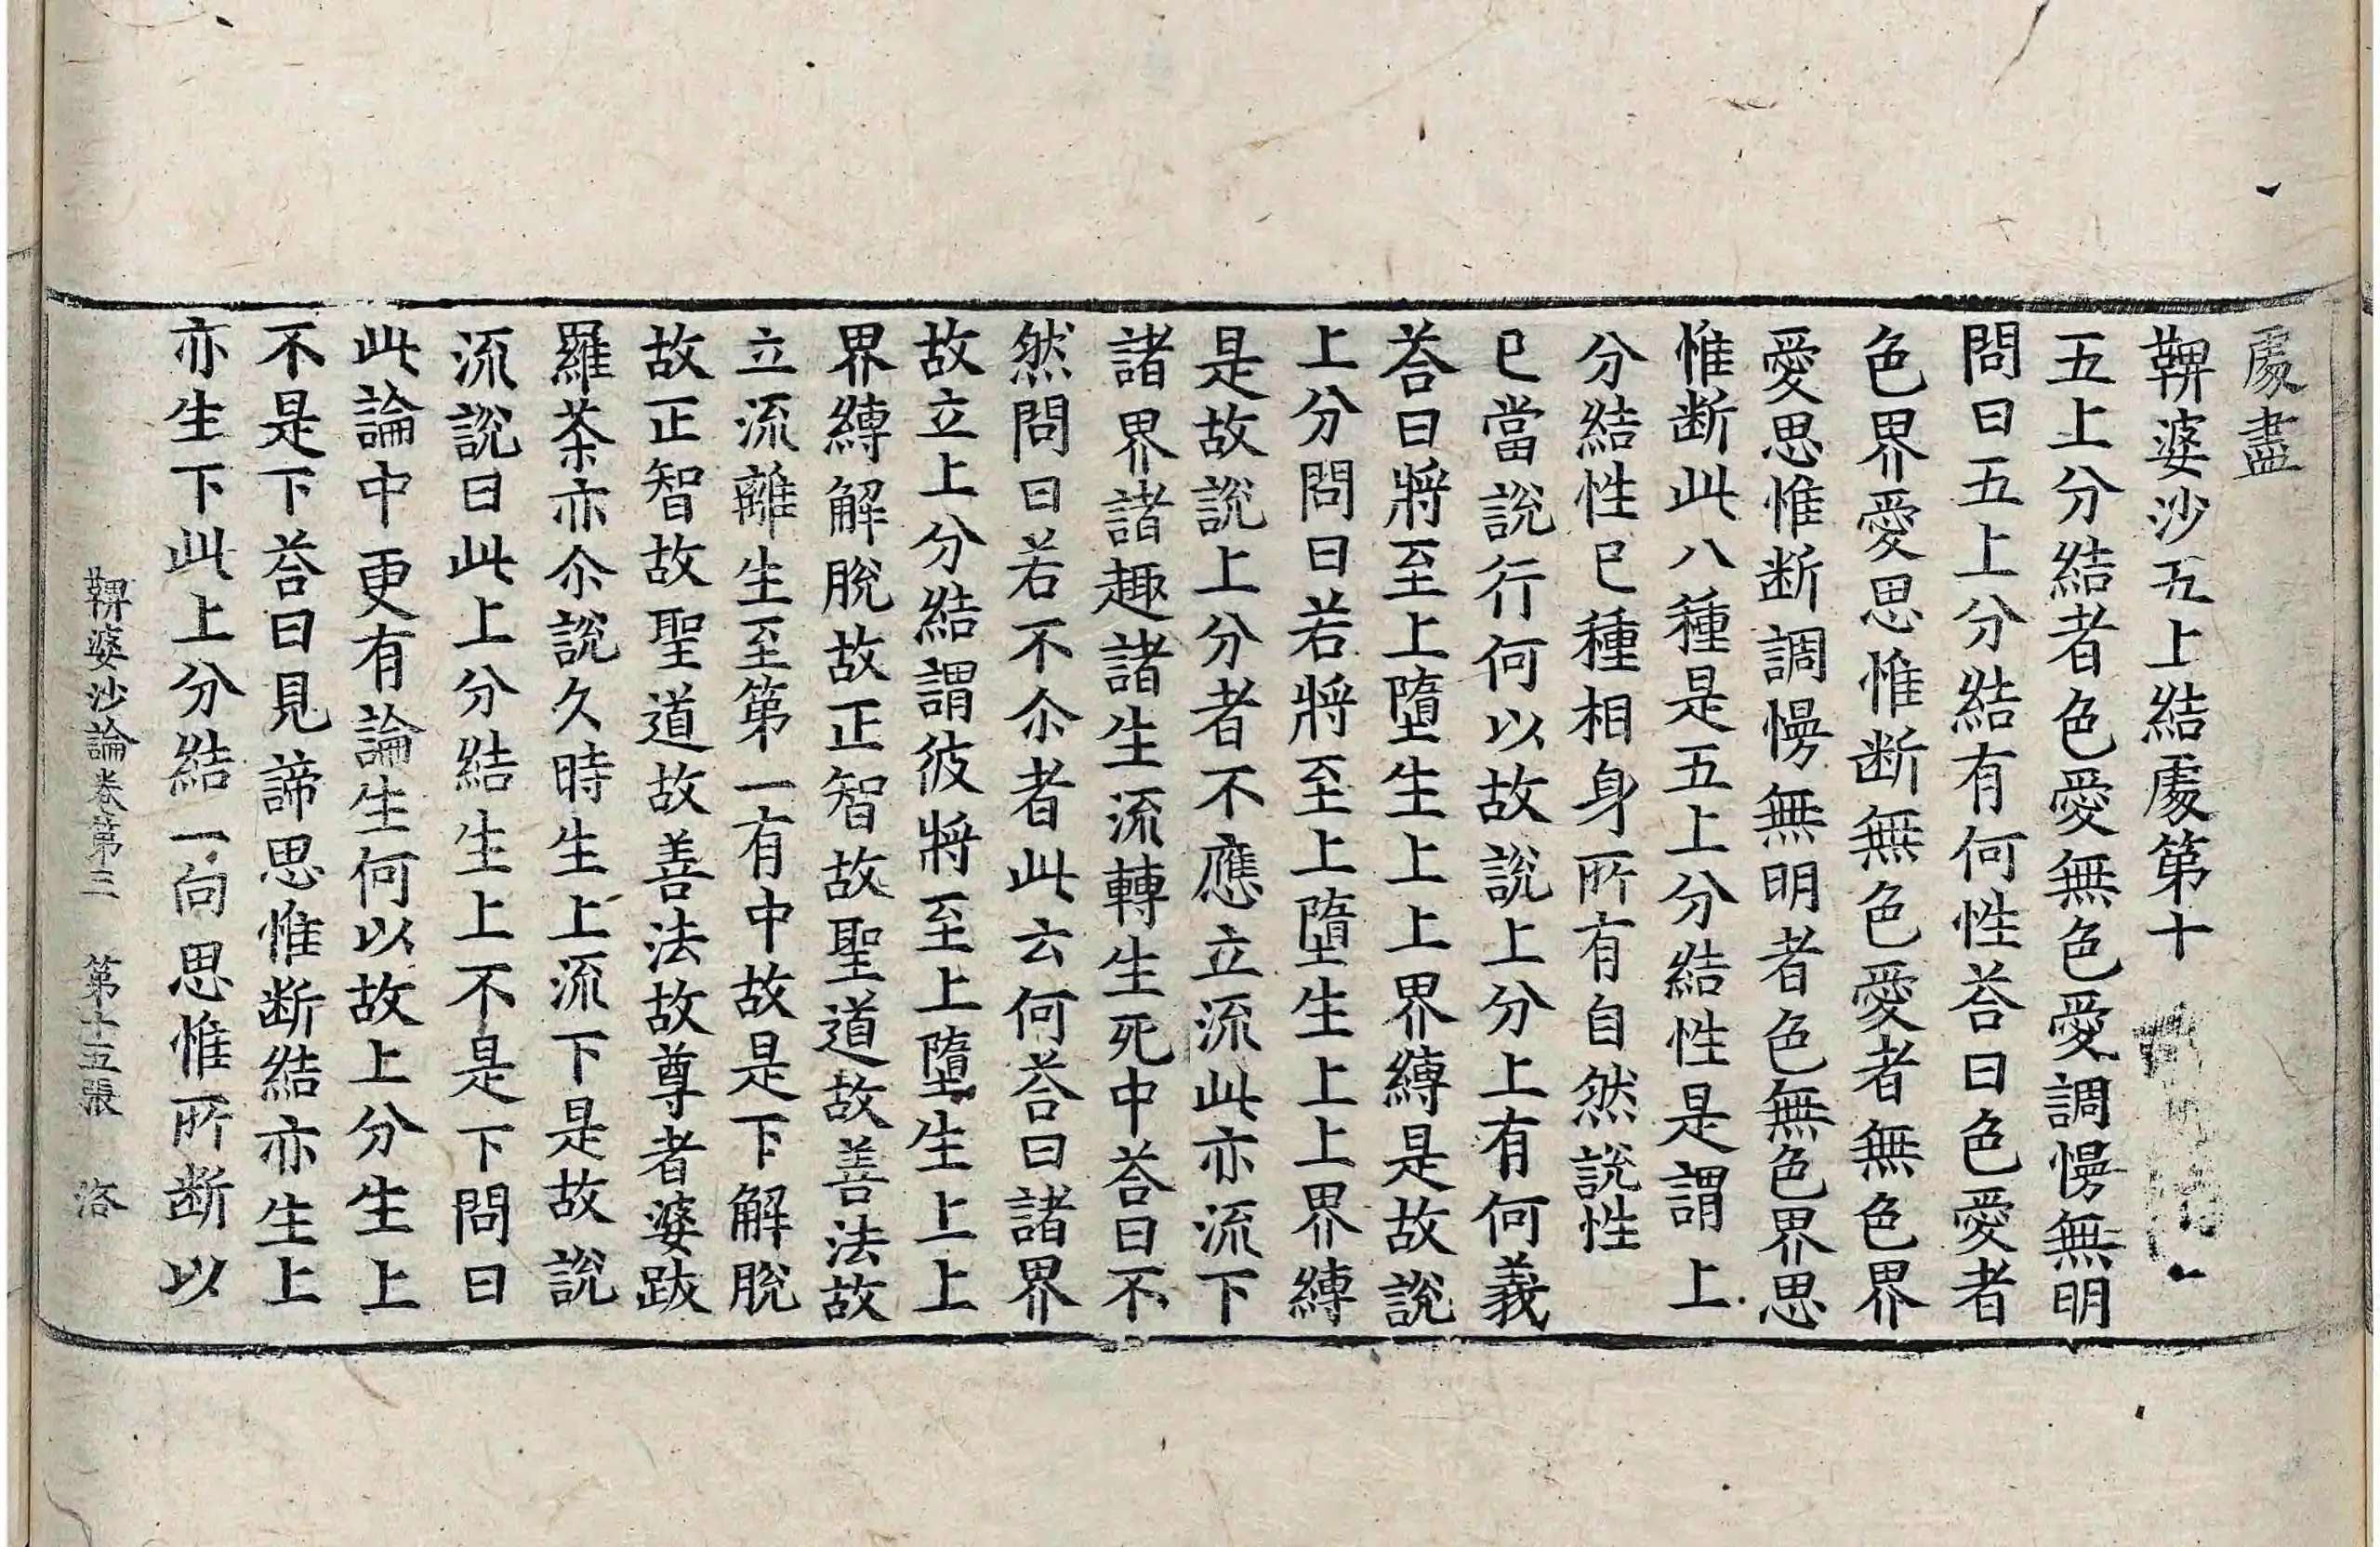 處盡
鞞婆沙五上結處第十
五上分結者色愛無色愛調慢無明
問曰五上分結有何性荅曰色愛者
色界愛思惟断無色愛者無色界
愛思惟断調慢無明者色無色界思
惟断此八種是五上分結性是謂上
分結性已種相身所有自然説性
已當説行何以故説上分上有何義
荅曰將至上墮生上上界縛是故説
上分問曰若將至上墮生上上界縛
是故説上分者不應立流此亦流下
諸界諸趣諸生流轉生死中荅曰不
然問曰若不尒者此云何荅曰諸界
故立上分結謂彼將至上墮生上上
界縛解脫故正智故聖道故善法故
立流離生至第一有中故是下解脫
故正智故聖道故善法故尊者婆跋
羅茶亦尒説久時生上流下是故説
流説曰此上分結生上不是下問曰
此論中更有論生何以故上分生上
不是下荅曰見諦思惟断結亦生上
亦生下此上分結一向思惟所断以
鞞婆沙論卷第三 第十五張 洛